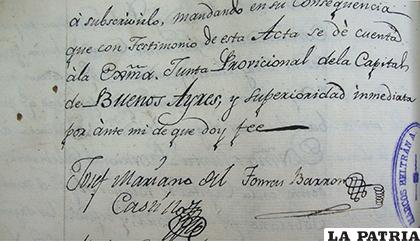 á subscrivirlo, mandando en su Consequencia
que con Testimonio de esta Acta se dé cuenta
á la Exma. Junta Provicional de la Capital
de Buenos Ayres, y Superioridad inmediata
por ante mi de que doy fee
Josef Mariano del
Castillo
Tomas Barron
LA PATRIA